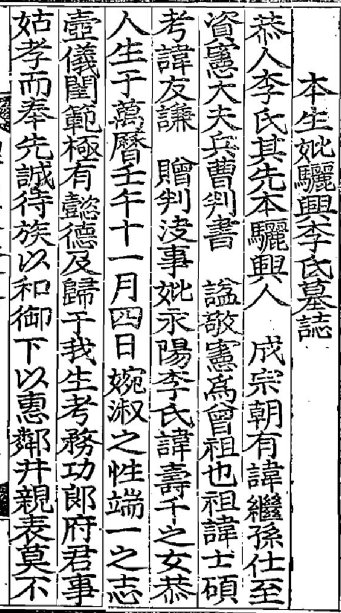 本生妣驪興李氏墓誌
恭人李氏其先本驪興人 成宗朝有諱繼孫仕至
資憲大夫兵曹判書 謚敬憲爲曾祖也祖諱士碩
考諱友謙 贈判决事妣永陽李氏諱壽千之女恭
人生于萬曆壬午十一月四日婉淑之性端一之志
壼儀閨範極有懿德及歸于我生考務功郞府君事
姑孝而奉先誠待族以和御下以惠鄰井親表莫不